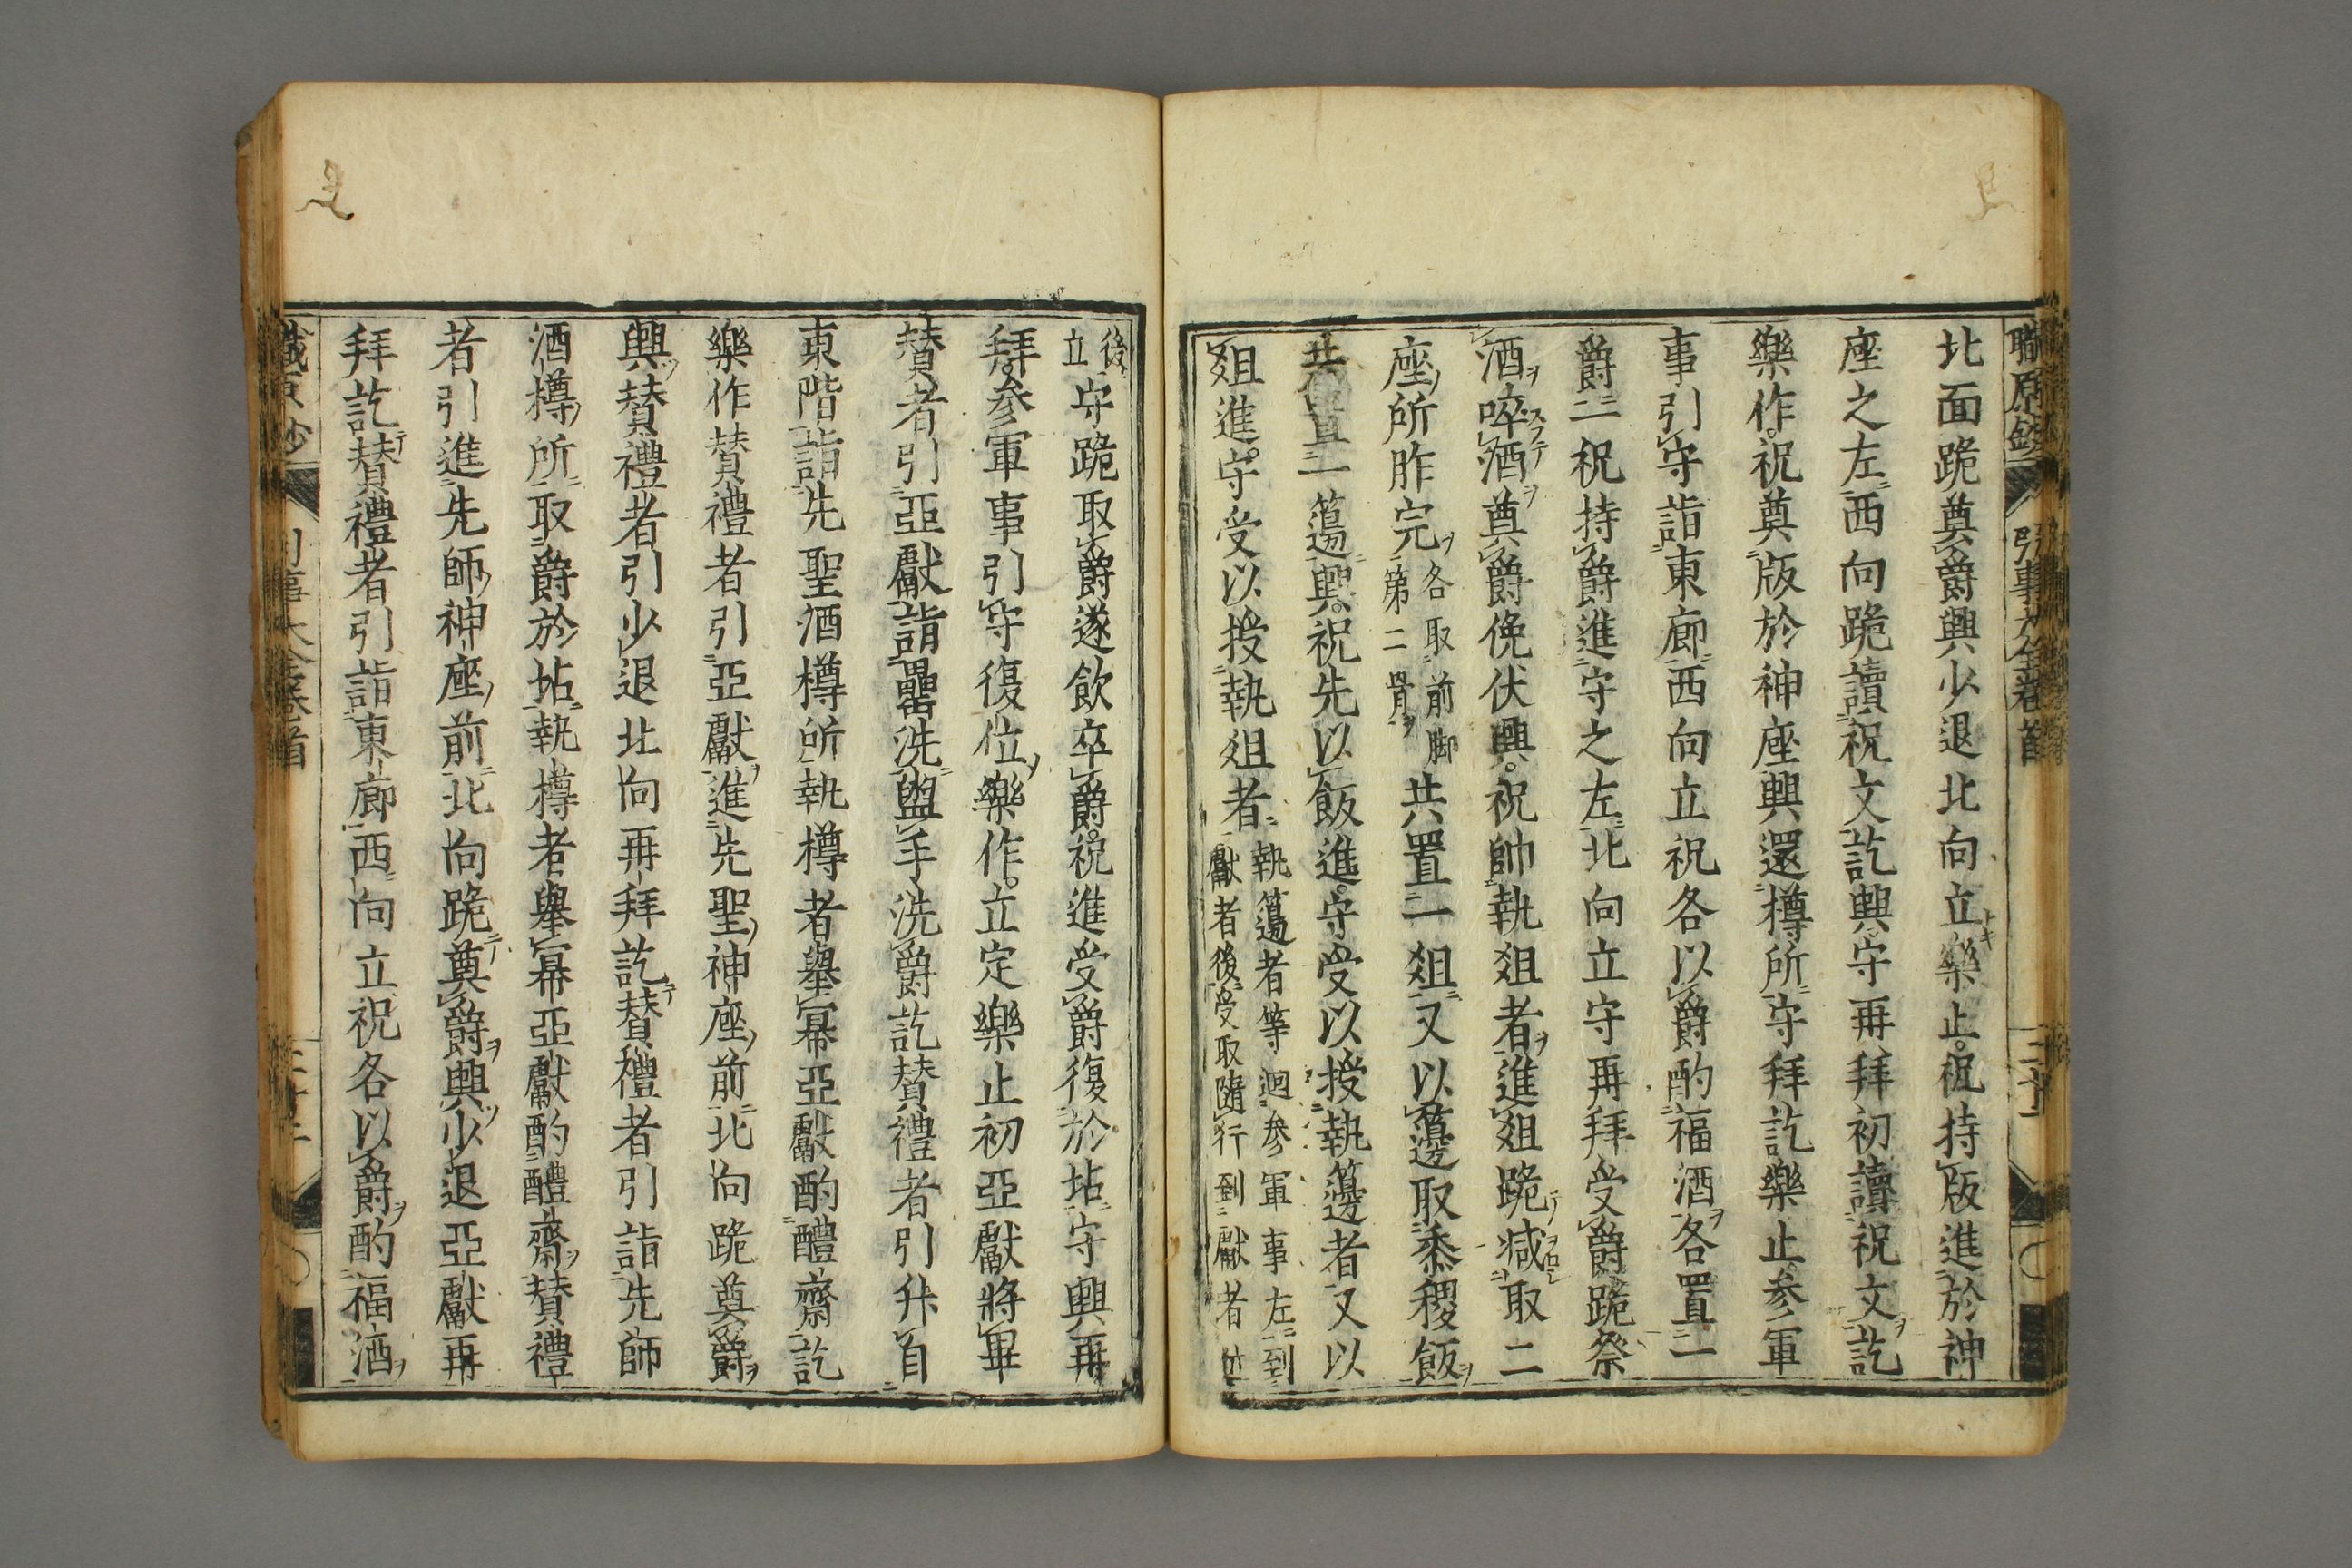 職原鈔 引事大全卷首
北面跪奠爵興少退北向立樂止祝持版進於神
座之左西向跪讀祝文訖興守再拜初讀祝文訖
樂作祝奠版於神座興還樽所守拜訖樂止參軍
事引守詣東廊西向立祝各以爵酌福酒各置一
爵二祝持爵進守之左北向立守再拜受爵跪祭
酒啐酒奠爵俛伏興祝帥執俎者進俎跪減取二
座所胙完各取前脚第二骨共置一俎又以籩取黍稷飯
共置一籩興祝先以飯進守受以授執籩者又以
俎進守受以授執俎者執籩者等迴參軍事左到獻者後受取隨行到獻者
後立守跪取爵遂飲卒爵祝進受爵復於坫守興再
拜參軍事引守復位樂作立定樂止初亞獻將畢
賛者引亞獻詣罍洗盥手洗爵訖賛禮者引升自
東階詣先聖酒樽所執樽者舉冪亞獻酌醴齋訖
樂作賛禮者引亞獻進先聖神座前北向跪奠爵
興賛禮者引少退北向再拜訖賛禮者引詣先師
酒樽所取爵於坫執樽者舉冪亞獻酌醴齋賛禮
者引進先師神座前北向跪奠爵興少退亞獻再
拜訖賛禮者引詣東廊西向立祝各以爵酌福酒